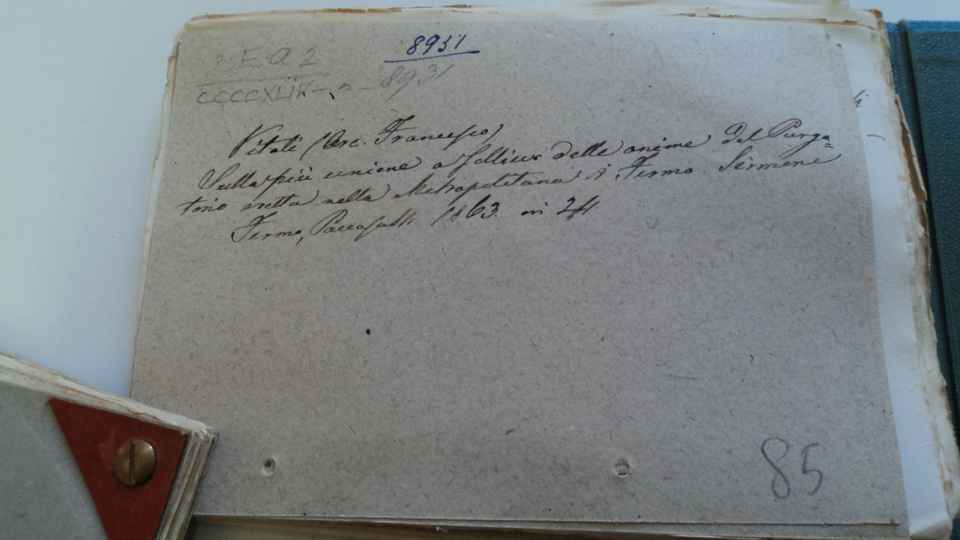 2 E Q 2
8931
CCCCXLIX - 2 - 8931
Vitali (Arc. Francesco)
Sulla pia unione a sollievo delle anime del Purga=
torio eretta nella Metropolitana di Fermo. Sermone
Fermo, Paccasassi 1863. in 24
85